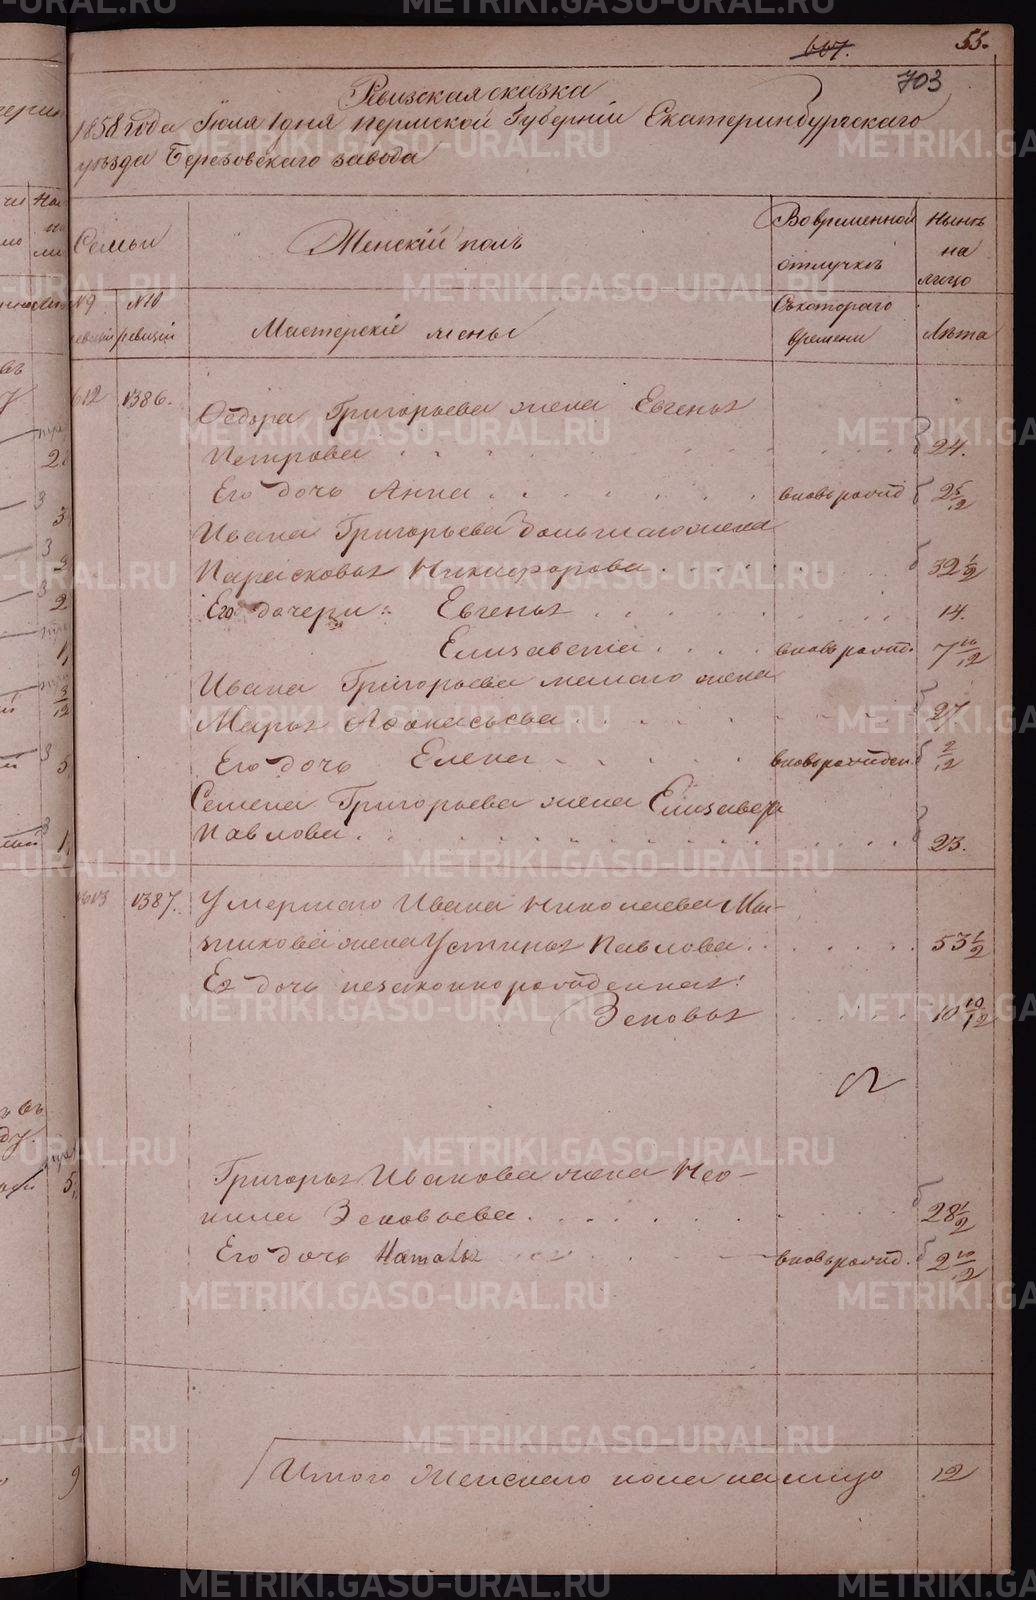 667.
55.
703
Ревизская сказка
1858 года Июля 1 дня Пермской Губерніи Екатеринбургскаго
уѣзда Березовскаго завода
Семьи
Женскій полъ
Во временной отлучкѣ
Нынѣ на лицо
№ 9 ревизіи
№ 10 ревизіи
Мастерскіе жены
Съ котораго времени
Лѣта
612 1386. Федора Григорьева жена Евгенья
Петрова 24.
Его дочь Анна вновь рожд 2 5/12
Ивана Григорьева большаго жена
Парасковья Никифорова 32 1/2
Его дочери: Евгенья 14.
Елизавета вновь рожд. 7 10/12
Ивана Григорьева малаго жена
Марья Афанасьева 27
Его дочь Елена вновь рожден. 2/12
Семена Григорьева жена Елизавета
Павлова 23.
613 1387. Умершаго Ивана Николаева Мы-
шикова жена Устинья Павлова 53 1/2
Ея дочь незаконнорожденная:
Зеновья 10 10/12
Григорья Иванова жена Нео-
нила Зеновьева 28 1/2
Его дочь Наталья вновь рожд. 2 10/12
Итого Женскаго пола на лицо 12
METRIKI.GASO-URAL.RU